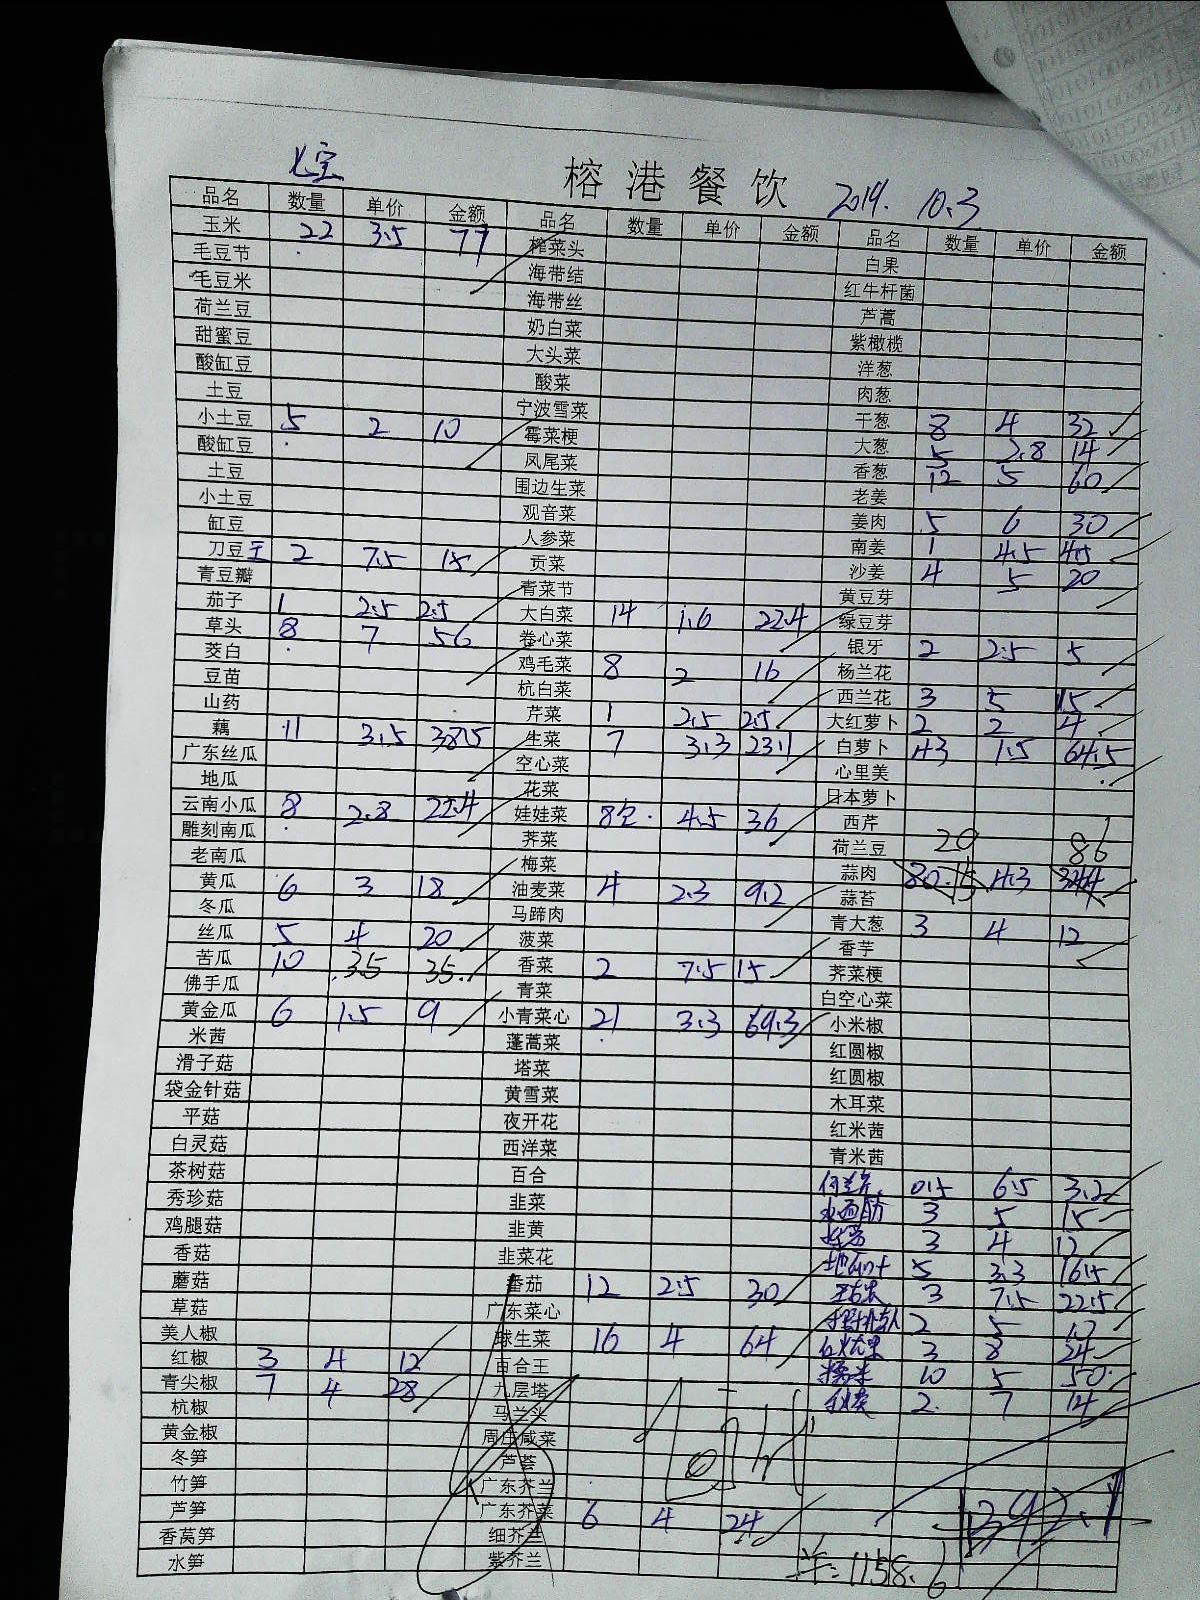 七宝 榕港餐饮 2014. 10.3
品名 数量 单价 金额 品名 数量 单价 金额 品名 数量 单价 金额
玉米 22 3.5 77 榨菜头 白果
毛豆节 海带结 红牛杆菌
毛豆米 海带丝 芦蒿
荷兰豆 奶白菜 紫橄榄
甜蜜豆 大头菜 洋葱
酸缸豆 酸菜 肉葱
土豆 宁波雪菜 干葱 8 4 32
小土豆 5 2 10 霉菜梗 大葱 5 2.8 14
酸缸豆 凤尾菜 香葱 12 5 60
土豆 围边生菜 老姜
小土豆 观音菜 姜肉 5 6 30
缸豆 人参菜 南姜 1 4.5 4.5
刀豆王 2 7.5 15 贡菜 沙姜 4 5 20
青豆瓣 青菜节 黄豆芽
茄子 1 2.5 2.5 大白菜 14 1.6 22.4 绿豆芽
草头 8 7 56 卷心菜 银牙 2 2.5 5
茭白 鸡毛菜 8 2 16 杨兰花
豆苗 杭白菜 西兰花 3 5 15
山药 芹菜 1 2.5 2.5 大红萝卜 2 2 4
藕 11 3.5 38.5 生菜 7 3.3 23.1 白萝卜 43 1.5 64.5
广东丝瓜 空心菜 心里美
地瓜 花菜 日本萝卜
云南小瓜 8 2.8 22.4 娃娃菜 8包 4.5 36 西芹
雕刻南瓜 荠菜 荷兰豆 20 86
老南瓜 梅菜 蒜肉 80 4.3 344
黄瓜 6 3 18 油麦菜 4 2.3 9.2 蒜苔
冬瓜 马蹄肉 青大葱 3 4 12
丝瓜 5 4 20 菠菜 香芋
苦瓜 10 3.5 35 香菜 2 7.5 15 荠菜梗
佛手瓜 青菜 白空心菜
黄金瓜 6 1.5 9 小青菜心 21 3.3 69.3 小米椒
米茜 蓬蒿菜 红圆椒
滑子菇 塔菜 红圆椒
袋金针菇 黄雪菜 木耳菜
平菇 夜开花 红米茜
白灵菇 西洋菜 青米茜
茶树菇 百合 0.5 6.5 3.2
秀珍菇 韭菜 水面筋 3 5 15
鸡腿菇 韭黄 3 4 12
香菇 韭菜花 5 3.3 16.5
蘑菇 番茄 12 2.5 30 3 7.5 22.5
草菇 广东菜心 2 5
美人椒 球生菜 16 4 64 3 8 24
红椒 3 4 12 百合王 糯米 10 5 50
青尖椒 7 4 28 九层塔 2 7 14
杭椒 马兰头
黄金椒 周庄咸菜
冬笋 芦荟
竹笋 广东芥兰
芦笋 广东芥菜 6 4 24 1392.1
香莴笋 细芥兰
水笋 紫芥兰 1158.6